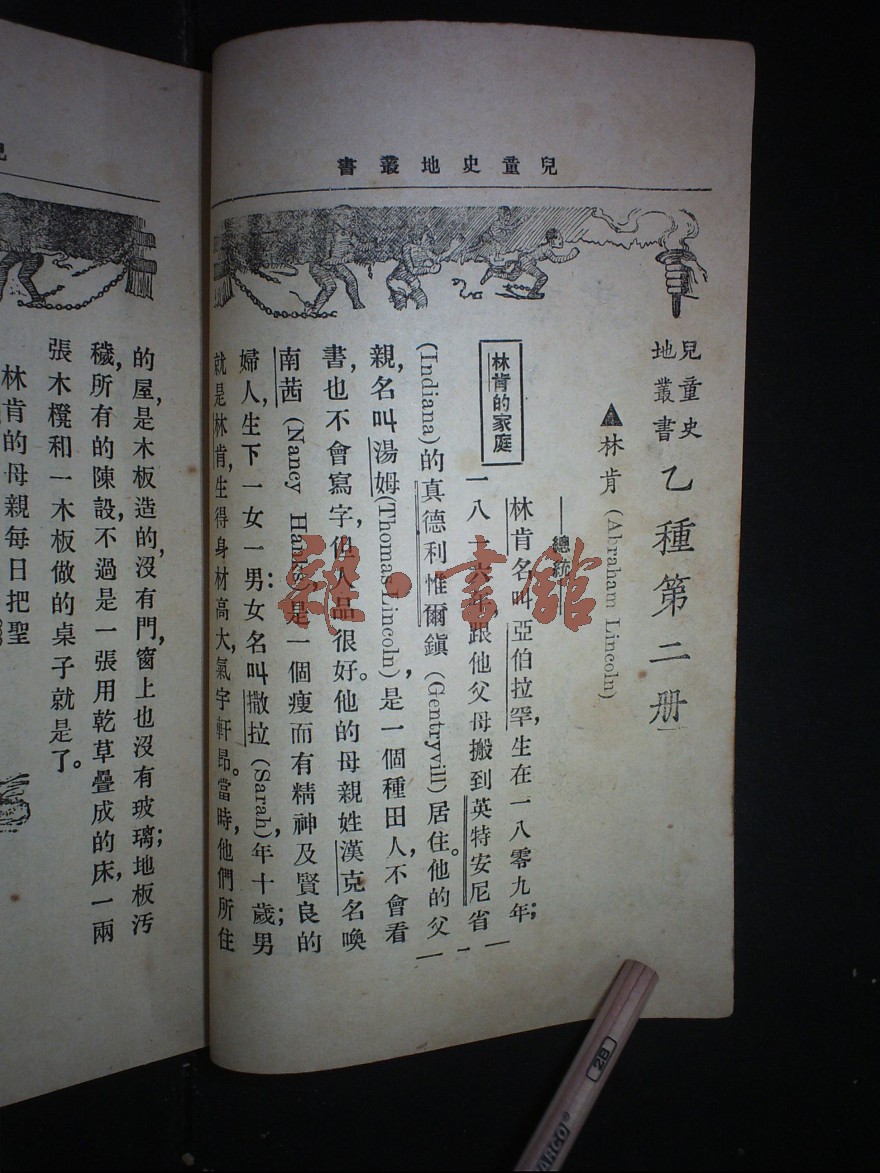 兒童史地叢書
兒童史地叢書 乙種第二册
▲林肯 (Abraham Lincoln)
——總統——
林肯的家庭
林肯名叫亞伯拉罕,生在一八零九年;
一八一六年,跟他父母搬到英特安尼省
(Indiana)的真德利惟爾鎭 (Gentryvill) 居住。他的父
親,名叫湯姆(Thomas Lincoln),是一個種田人,不會看
書,也不會寫字,但人品很好。他的母親姓漢克名喚
南茜 (Nancy Hanks),是一個瘦而有精神及賢良的
婦人,生下一女一男:女名叫撒拉 (Sarah),年十歲;男
就是林肯,生得身材高大,氣宇軒昂。當時,他們所住
的屋,是木板造的,沒有門,窗上也沒有玻璃;地板汚
穢,所有的陳設,不過是一張用乾草疊成的床,一兩
張木櫈和一木板做的桌子就是了。
林肯的母親每日把聖
雜·書館
2B